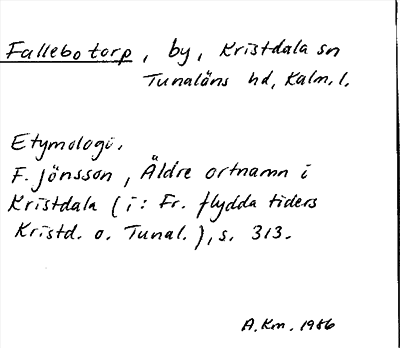 Fallebo torp, by, Kristdala sn
Tunaläns hd, Kalm. l.
Etymologi.
F. Jönsson, Äldre ortnamn i
Kristdala (i: Fr. flydda tiders
Kristd. o. Tunal.), s. 313.
A.Km. 1986